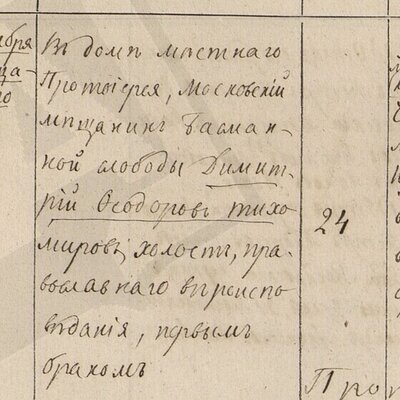 ября
Въ домѣ мѣстнаго
Протоіерея, Московскій
мѣщанинъ Басман-
ной слободы Димит-
рій Ѳеодоровъ Тихо
мировъ, холостъ, пра-
вославнаго вѣроиспо
вѣданія, первымъ
бракомъ
24
Про